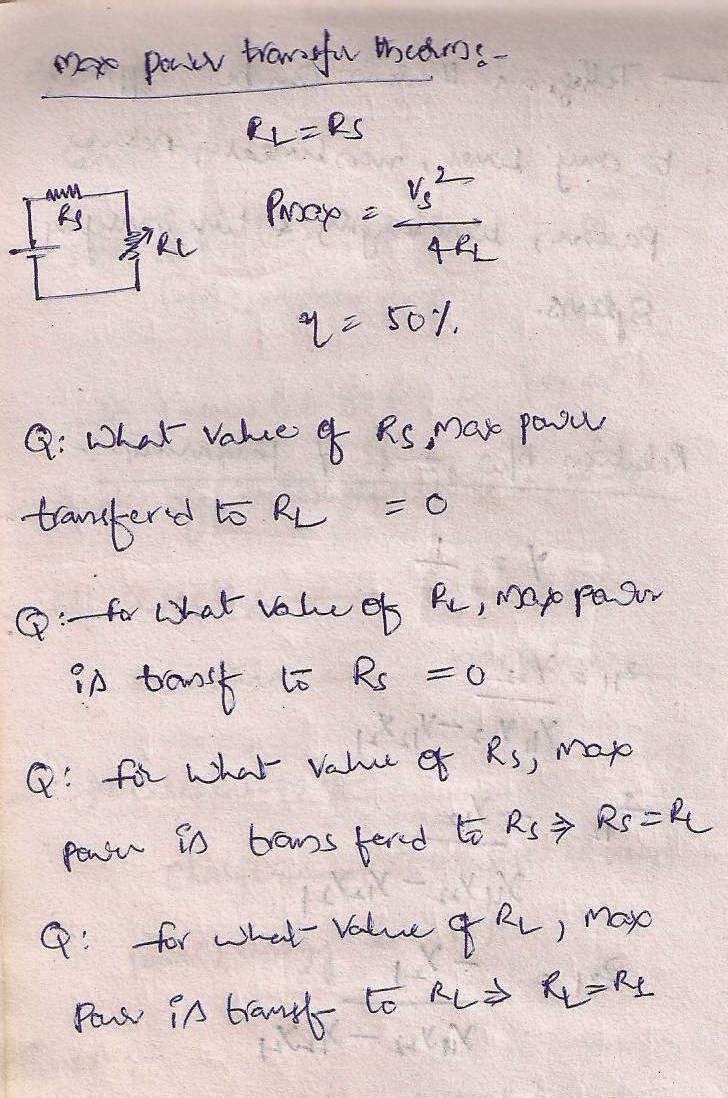 Max power transfer theorm:-
RL = RS
RS
RL
Pmax = Vs² / 4RL
η = 50%.
Q: What value of RS, max power
transfered to RL = 0
Q: for what value of RL, max power
is transf to Rs = 0
Q: for what value of Rs, max
power is transfered to Rs ⇒ Rs = RL
Q: for what value of RL, max
Power is transf to RL ⇒ RL = Rs